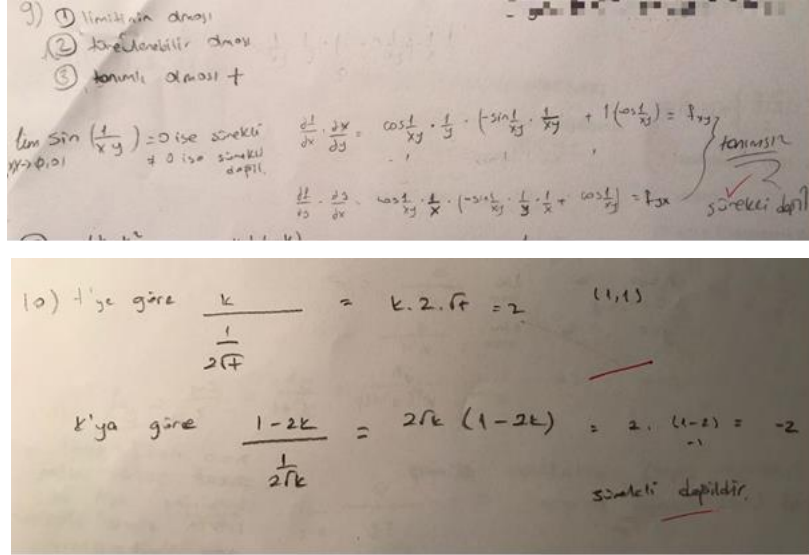 9) ① limitinin olması
② türevlenebilir olması
③ tanımlı olması +
lim sin (1/xy) = 0 ise sürekli
≠ 0 ise sürekli değil.
∂f/∂x · ∂x/∂y = cos 1/xy · 1/y · (-sin 1/xy · 1/xy + 1(cos 1/xy) = fxy
tanımsız
∂f/∂y · ∂y/∂x = cos 1/xy · 1/x · (-sin 1/xy · 1/y · 1/x + cos 1/xy) = fyx
sürekli değil
10) t'ye göre k / (1/2√t) = k.2.√t = 2 (1,1)
k'ya göre (1-2k) / (1/2√k) = 2√k (1-2k) = 2. (1-2) = -2
-1
sürekli değildir.